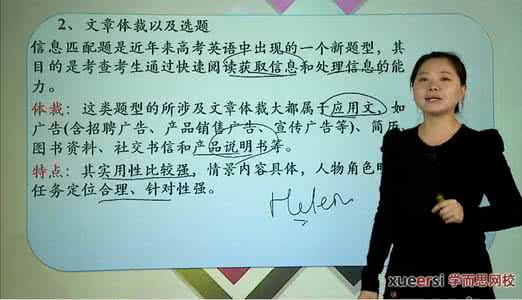 2、文章体裁以及选题
信息匹配题是近年来高考英语中出现的一个新题型，其
目的是考查考生通过快速阅读获取信息和处理信息的能
力。
体裁：这类题型的所涉及文章体裁大都属于应用文，如
广告(含招聘广告、产品销售广告、宣传广告等)、简历、
图书资料、社交书信和产品说明书等。
特点：其实用性比较强，情景内容具体，人物角色明
任务定位合理、针对性强。
Helen
xueersi 学而思网校